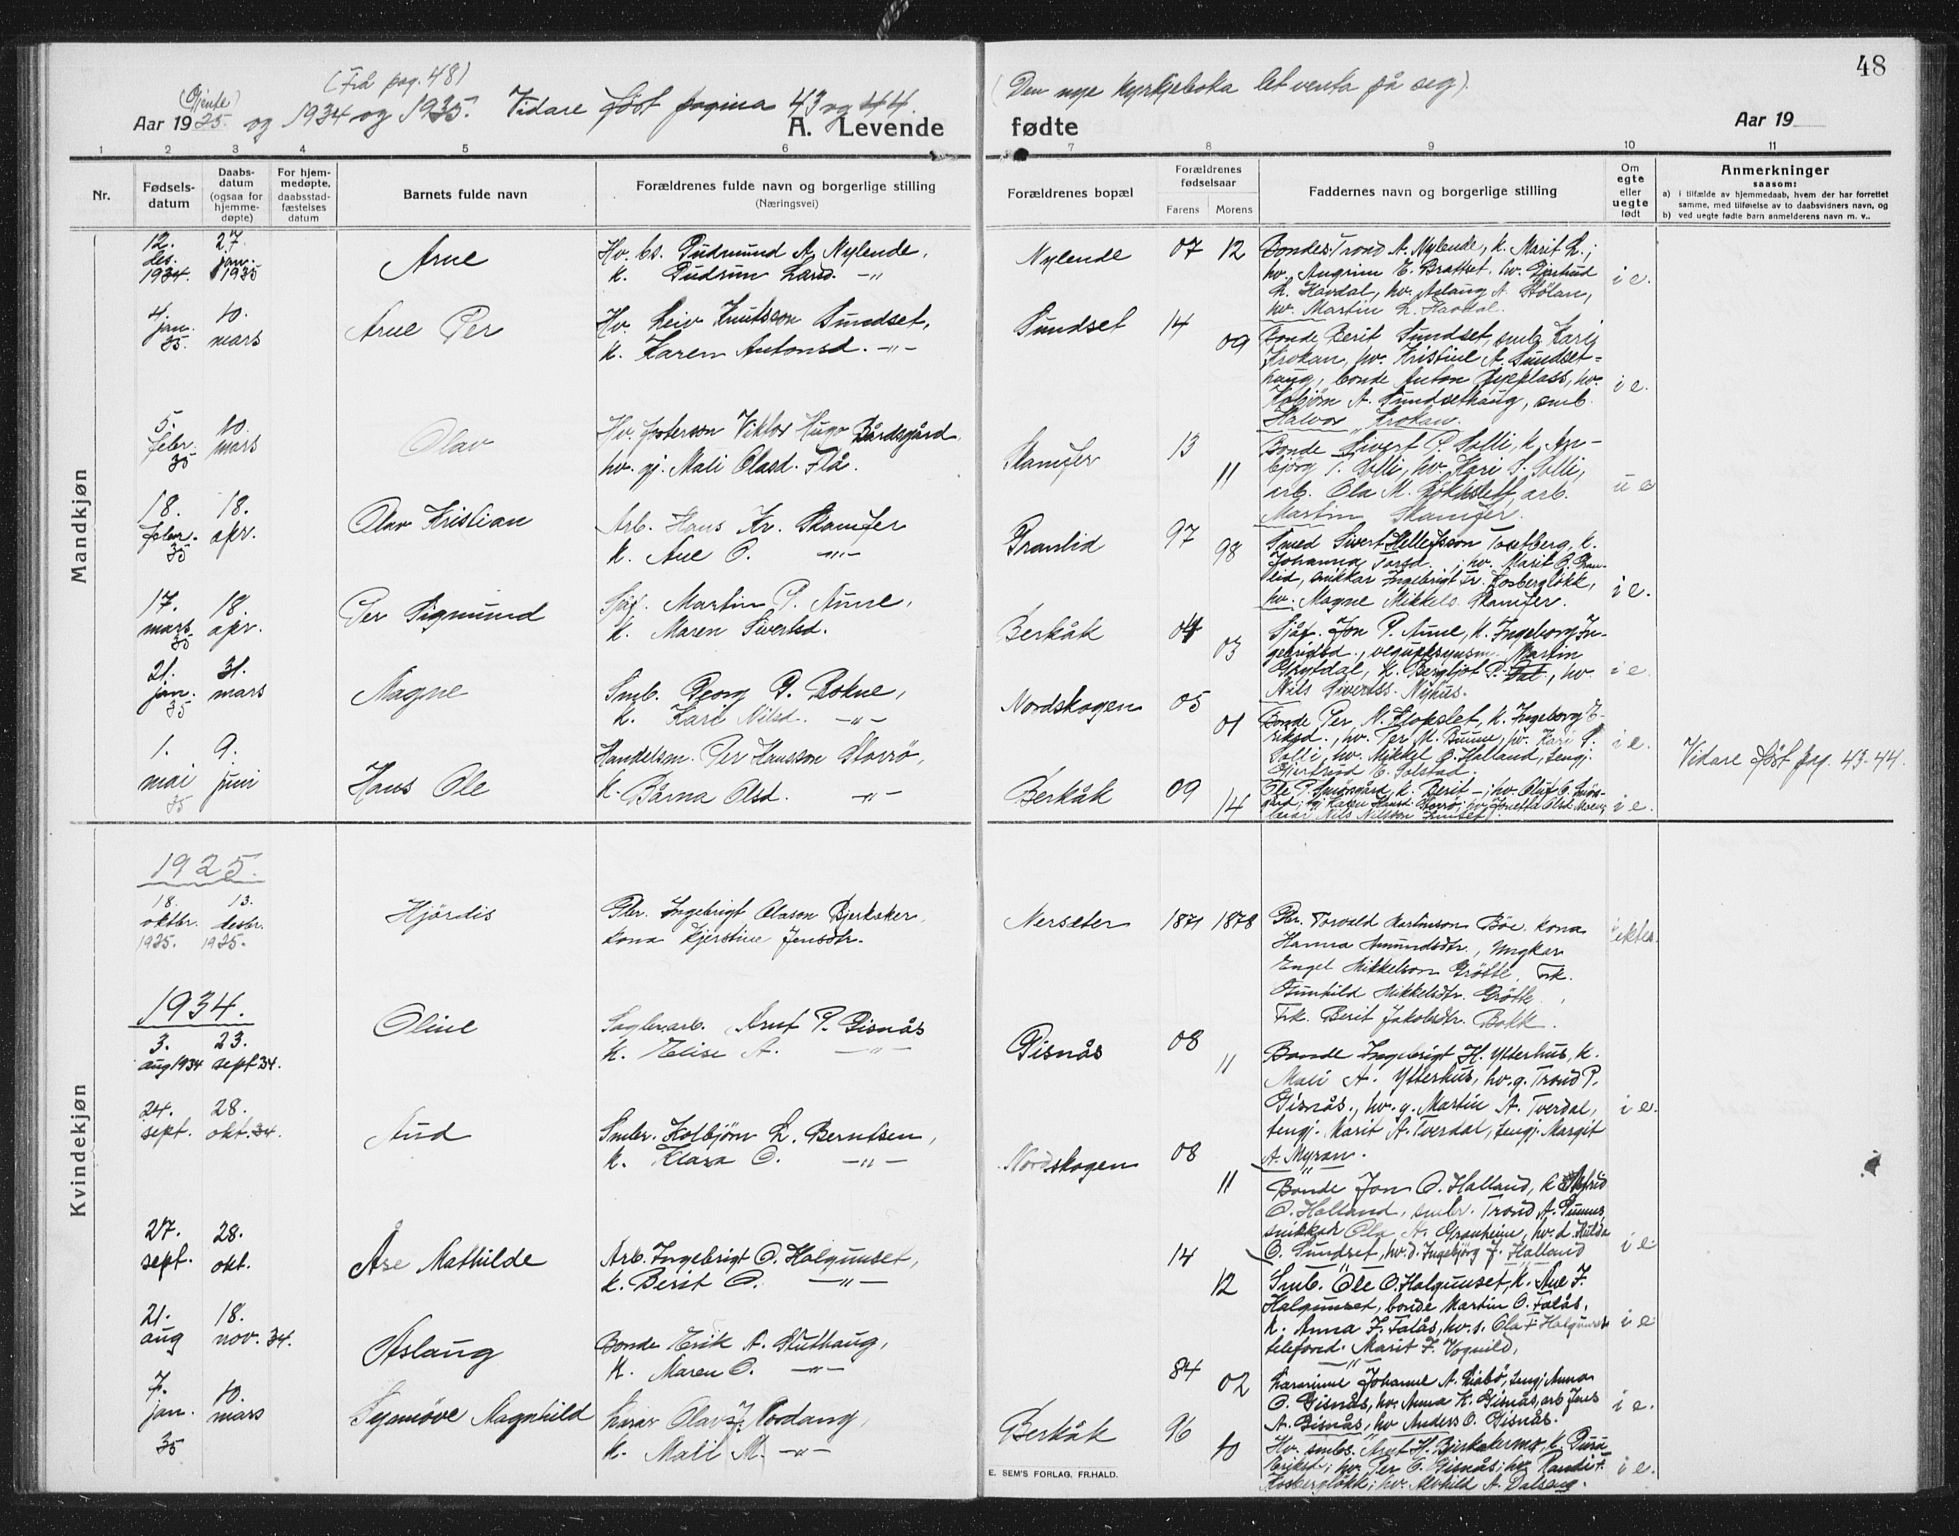 (Frå pag. 48)
(Gjente)
Aar 1925. og 1934 og 1935. Vidare føst pagina 43 og 44.
A. Levende
(Den nye kyrkjeboka let venta på seg).
48
fødte
Aar 19
1 2 3 4 5 6 7 8 9 10 11
Nr.
Fødsels-
datum
Daabs-
datum
(ogsaa for
hjemme-
døpte)
For hjem-
medøpte,
daabsstad-
fæstelses
datum
Barnets fulde navn
Forældrenes fulde navn og borgerlige stilling
(Næringsvei)
Forældrenes bopæl
Forældrenes
fødselsaar
Farens Morens
Faddernes navn og borgerlige stilling
Om
egte
eller
uegte
født
Anmerkninger
saasom:
a) i tilfælde av hjemmedaab, hvem der har forrettet
samme, med tilføielse av to daabsvidners navn, og
b) ved uegte fødte barn anmelderens navn m. v..
Mandkjøn
12. des. 1934. 27. jan. 1935
Arne
Hv. bs. Gudmund A. Nylende,
k. Gudrun Lars. -"-
Nylende 07 12
Bondes Trond A. Nylende, k. Marit L.;
hv. Angrim E. Brattset, hv. Gjertrud
L. Havdal, hv. Aslaug A. Stølan,
hv. Martin L. Havdal.
i e.
4. jan. 35. 10. mars
Arne Per
Hv. Leiv Knutsson Sundset,
k. Karen Antonsd. -"-
Sundset 14 09
Bonde Berit Sundset, smb. Kari
Krokan, hv. Kristine A. Sundset-
haug, bonde Anton Jæplass, hv.
Kolbjørn A. Sundsethaug, smb.
Halvor Krokan.
i e.
5. febr. 35 10. mars
Olav
Hv. Peterson Viktor Hugo Bårdsgård
hv. gj. Mali Olasd. Flå.
Skamfer 13 11
Bonde Sivert P. Solli, k. An-
bjørg T. Solli, hv. Kari S. Solli,
arb. Ola M. Bokkslett, arb.
Martin Skamfer.
u e
18. febr. 35 18. apr.
Olav Kristian
Arb. Hans Kr. Skamfer
k. Ane O. -"-
Granlid 97 98
Smed Sivert Hellefsson Tostberg, k.
Johanna Larsd., hv. Marit O. Gran-
leid, snikkar Ingebrigt Tr. Kosbergløkk,
hv. Magne Mikkels. Skamfer.
i e.
17. mars 35 18. apr.
Per Sigmund
Sjåf. Martin P. Aune,
k. Maren Sivertsd.
Berkåk 04 03
Sjåf. Jon P. Aune, k. Ingeborg In-
gebrigtsd., vegoppsynsm. Martin
Grytdal, k. Bergljot P. Dal, hv.
Nils Sivertss. Nyhus.
i e
21. jan. 35 31. mars
Magne
Smb. Georg P. Bokne,
k. Kari Nilsd. -"-
Nordskogen 05 01
Bonde Per N. Klokslet, k. Ingeborg E-
riksd., hv. Per M. Buune, hv. Kari P.
Solli, hv. Mikkel O. Halland, tengj.
Gjertrud E. Solstad.
i e.
1. mai 35 9. juni
Hans Ole
Handelsm. Per Hansson Storrø,
k. Bårna Olsd. -"-
Berkåk 09 14
Ole P. Smørsgård, k. Berit -; hv. Oluf O. Smørs-
gård; tg. Karen Hansd. Storrø; hv. Jonetta Olsd. Moen;
lærar Nils Nilsson Lunset.
i e.
Vidare føst pag. 43-44.
Kvindekjøn
1925.
18. oktbr. 1925. 13. desbr. 1925.
Hjördis
Gbr. Ingebrigt Olason Bjerksker,
kona Kjerstine Jensdtr.
Nersæter 1871 1878
Gbr. Torvald Martinson Böe, kona
Hanna Amundsdtr., ungkar
Engel Mikkelson Grötte, frk.
Gunhild Mikkelsdtr. Grötte,
Frk. Berit Jakobsdtr. Bakk.
ekte.
1934.
3. aug 1934 23. sept 34.
Oline
Sagbr.arb. Arnt P. Gisnås
k. Elise A. -"-
Gisnås 08 11
Bonde Ingebrigt H. Ytterhus, k.
Mali A. Ytterhus, hv. g. Trond P.
Gisnås., hv. g. Martin A. Tverdal,
tengj. Marit A. Tverdal, tengj. Margit
A. Myran.
i e.
24. sept. 28. okt. 34.
Aud
Smbr. Kolbjørn L. Berntsen,
k. Klara O. -"-
Nordskogen 08 11
Bonde Jon O. Halland, k. Astrid
O. Halland, smbr. Trond A. Gunnes,
snikkar Ola A. Granheim, hv. d. Hilda
O. Sundset, hv. d. Ingebjørg J. Halland
i e.
27. sept. 28. okt.
Åse Mathilde
Arb. Ingebrigt O. Halgunset,
k. Berit O. -"-
14 12
Smb. Ole O. Halgunset, k. Ane F.
Halgunset, bonde Martin O. Folås,
k. Anna F. Folås, hv. s. Ola F. Halgunset
telefond. Marit F. Vognild,
i e
21. aug 18. nov. 34.
Åslaug
Bonde Erik A. Stuthaug,
k. Maren O. -"-
84 02
Kararinne Johanne A. Liabø, tengj. Anna
O. Gisnås, hv. Anna K. Gisnås, arb. Jens
A. Gisnås, hv Anders O. Gisnås.
i e.
7. jan. 35 10. mars
Synnøve Magnhild
Lærar Olav J. Nordang,
k. Mali M. -"-
Berkåk 96 10
Hv. smbs. Arnt H. Bjerkåkermo, k. Guru
Eriksd.; hv. Per O. Gisnås; hv. Randi T.
Kosbergløkk; hv. Alvhild A. Dalsaug.
i e.
E. SEM'S FORLAG. FR.HALD.